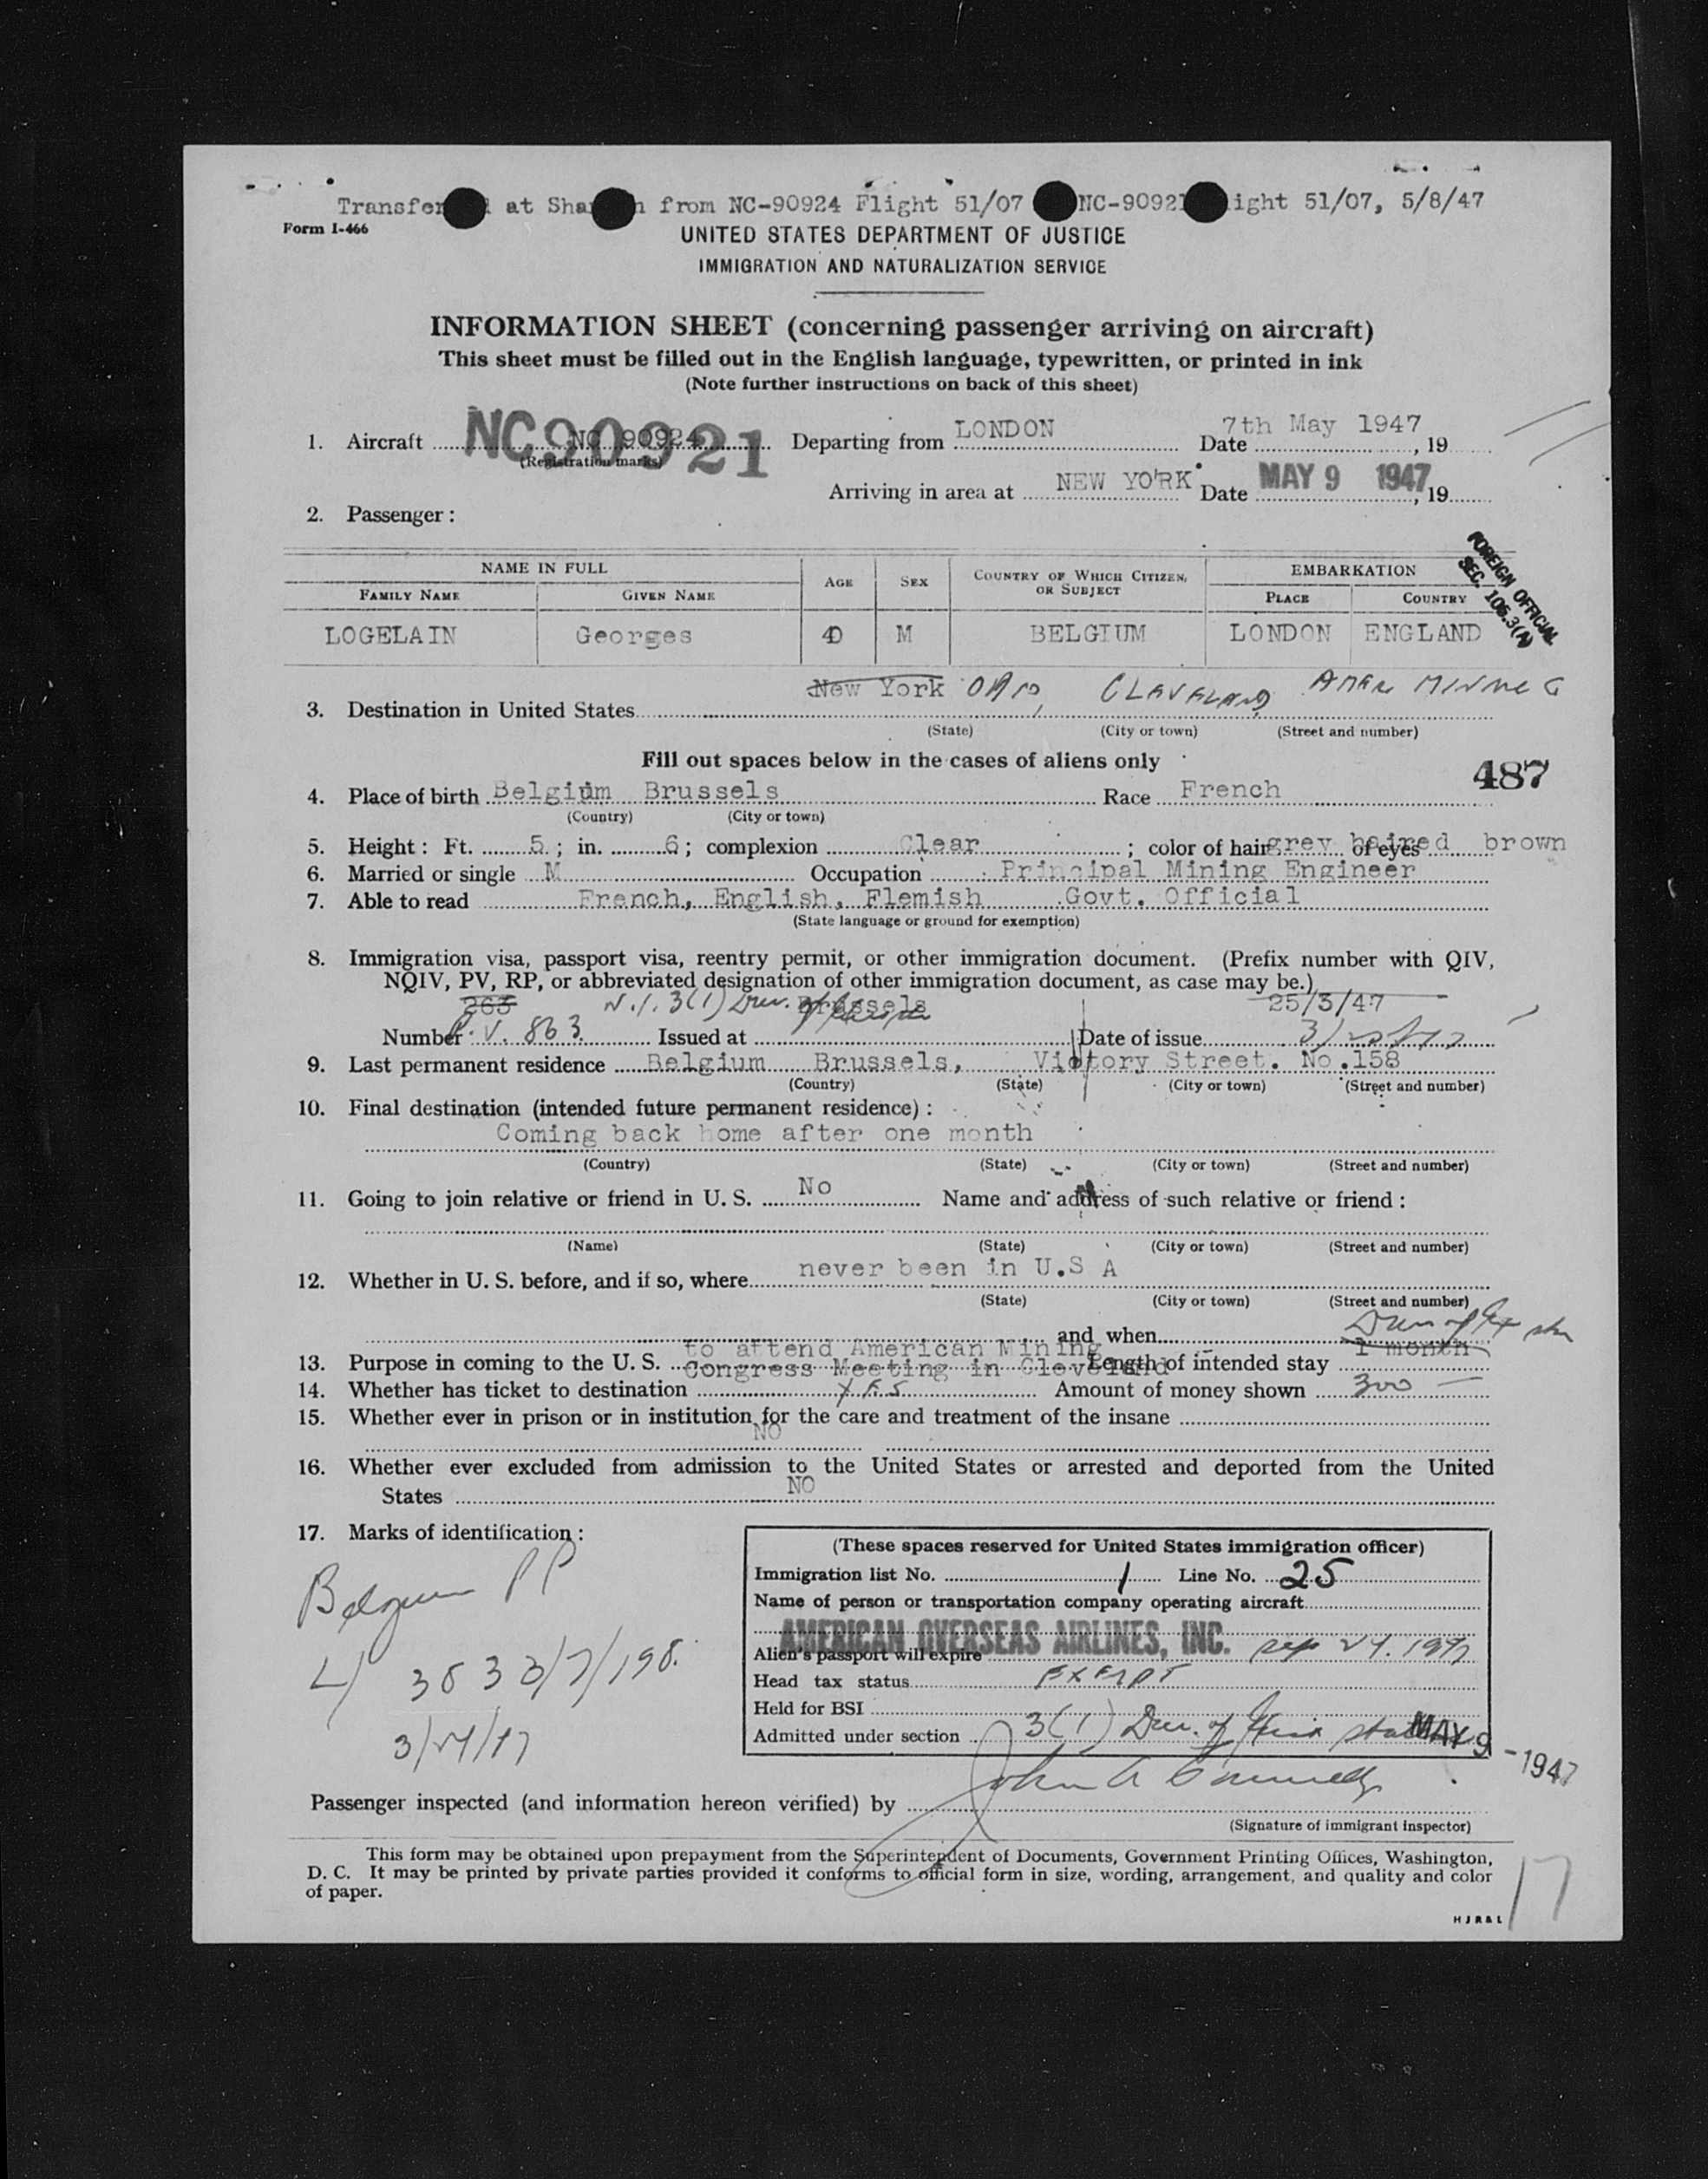 Transfer at Sha n from NC-90924 Flight 51/07 NC-90921 ight 51/07, 5/8/47
Form I-466
UNITED STATES DEPARTMENT OF JUSTICE
IMMIGRATION AND NATURALIZATION SERVICE
INFORMATION SHEET (concerning passenger arriving on aircraft)
This sheet must be filled out in the English language, typewritten, or printed in ink
(Note further instructions on back of this sheet)
1. Aircraft NC 90924 NC90921 Departing from LONDON Date 7th May 1947, 19
(Registration marks)
Arriving in area at NEW YORK Date MAY 9 1947, 19
2. Passenger:
FOREIGN OFFICIAL
SEC. 106.3(A)
NAME IN FULL AGE SEX COUNTRY OF WHICH CITIZEN, OR SUBJECT EMBARKATION
FAMILY NAME GIVEN NAME PLACE COUNTRY
LOGELAIN Georges 40 M BELGIUM LONDON ENGLAND
3. Destination in United States New York OHIO, CLEVELAND, AMER MINING
(State) (City or town) (Street and number)
Fill out spaces below in the cases of aliens only
487
4. Place of birth Belgium Brussels Race French
(Country) (City or town)
5. Height: Ft. 5; in. 6; complexion Clear; color of hair grey haired of eyes brown
6. Married or single M Occupation Principal Mining Engineer
7. Able to read French, English, Flemish Govt. Official
(State language or ground for exemption)
8. Immigration visa, passport visa, reentry permit, or other immigration document. (Prefix number with QIV,
NQIV, PV, RP, or abbreviated designation of other immigration document, as case may be.)
263 3(1) Brussels 25/3/47
Number P.V. 863 Issued at Date of issue
9. Last permanent residence Belgium Brussels, Victory Street. No.158
(Country) (State) (City or town) (Street and number)
10. Final destination (intended future permanent residence):
Coming back home after one month
(Country) (State) (City or town) (Street and number)
11. Going to join relative or friend in U. S. No Name and address of such relative or friend:
(Name) (State) (City or town) (Street and number)
12. Whether in U. S. before, and if so, where never been in U.S A
(State) (City or town) (Street and number)
and when
13. Purpose in coming to the U. S. to attend American Mining Congress Meeting in Cleveland Length of intended stay 1 month
14. Whether has ticket to destination YES Amount of money shown 300
15. Whether ever in prison or in institution for the care and treatment of the insane
NO
16. Whether ever excluded from admission to the United States or arrested and deported from the United
States NO
17. Marks of identification:
Belgium PP
(These spaces reserved for United States immigration officer)
Immigration list No. 1 Line No. 25
Name of person or transportation company operating aircraft
AMERICAN OVERSEAS AIRLINES, INC.
Alien's passport will expire Sep 24. 1947
Head tax status EXEMPT
Held for BSI
Admitted under section 3(1) Dur. of status MAY 9 - 1947
Passenger inspected (and information hereon verified) by
(Signature of immigrant inspector)
This form may be obtained upon prepayment from the Superintendent of Documents, Government Printing Offices, Washington,
D. C. It may be printed by private parties provided it conforms to official form in size, wording, arrangement, and quality and color
of paper.
HJR&L
17